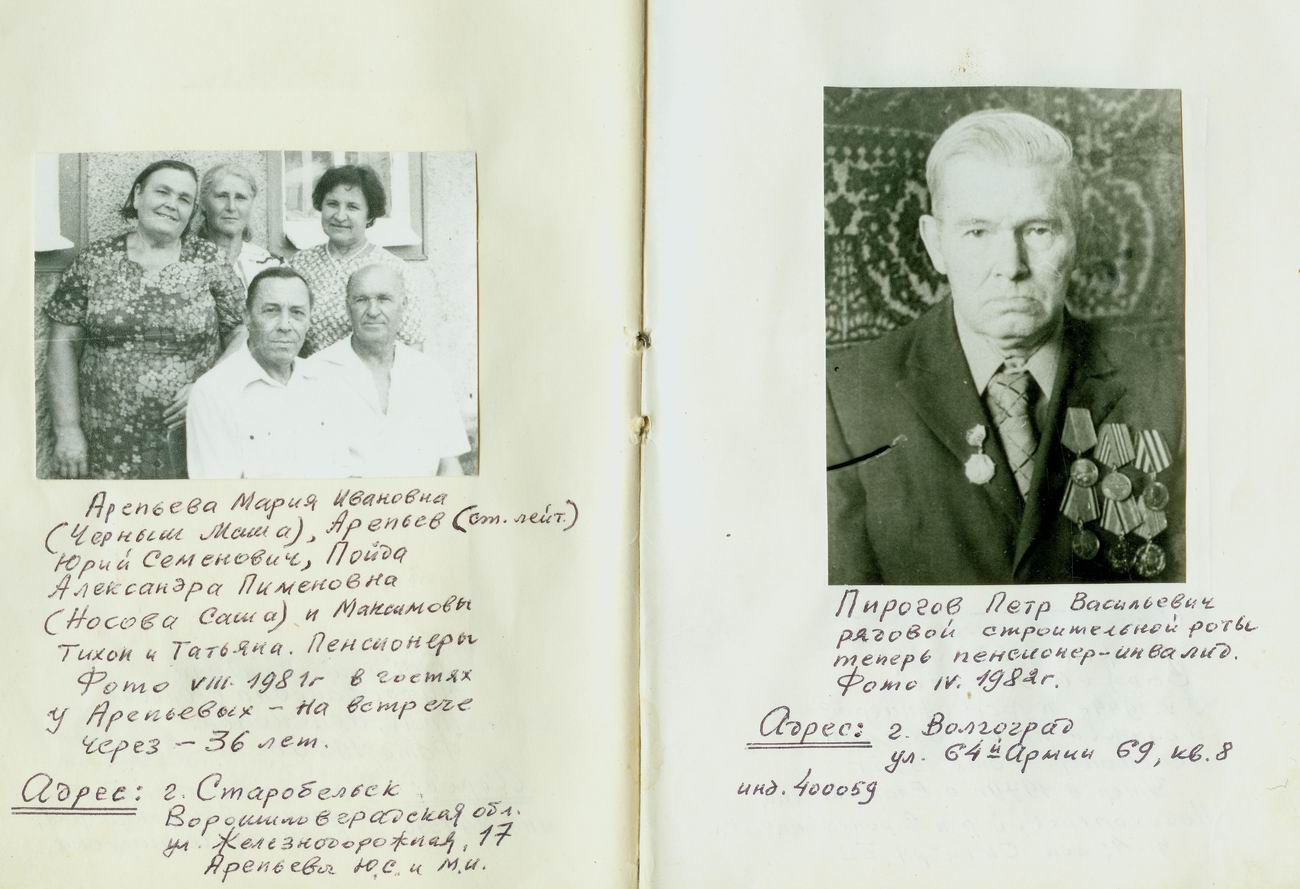 Арепьева Мария Ивановна
(Черныш Маша), Арепьев (ст. лейт.)
Юрий Семенович, Пойда
Александра Пименовна
(Носова Саша) и Максимовы
Тихон и Татьяна. Пенсионеры
Фото VIII. 1981г в гостях
у Арепьевых – на встрече
через – 36 лет.
Адрес: г. Старобельск
Ворошиловградская обл.
ул. Железнодорожная, 17
Арепьевы Ю.С. и М.И.
Пирогов Петр Васильевич
рядовой строительной роты
теперь пенсионер-инвалид.
Фото IV. 1982г.
Адрес: г. Волгоград
ул. 64й Армии 69, кв. 8
инд. 400059